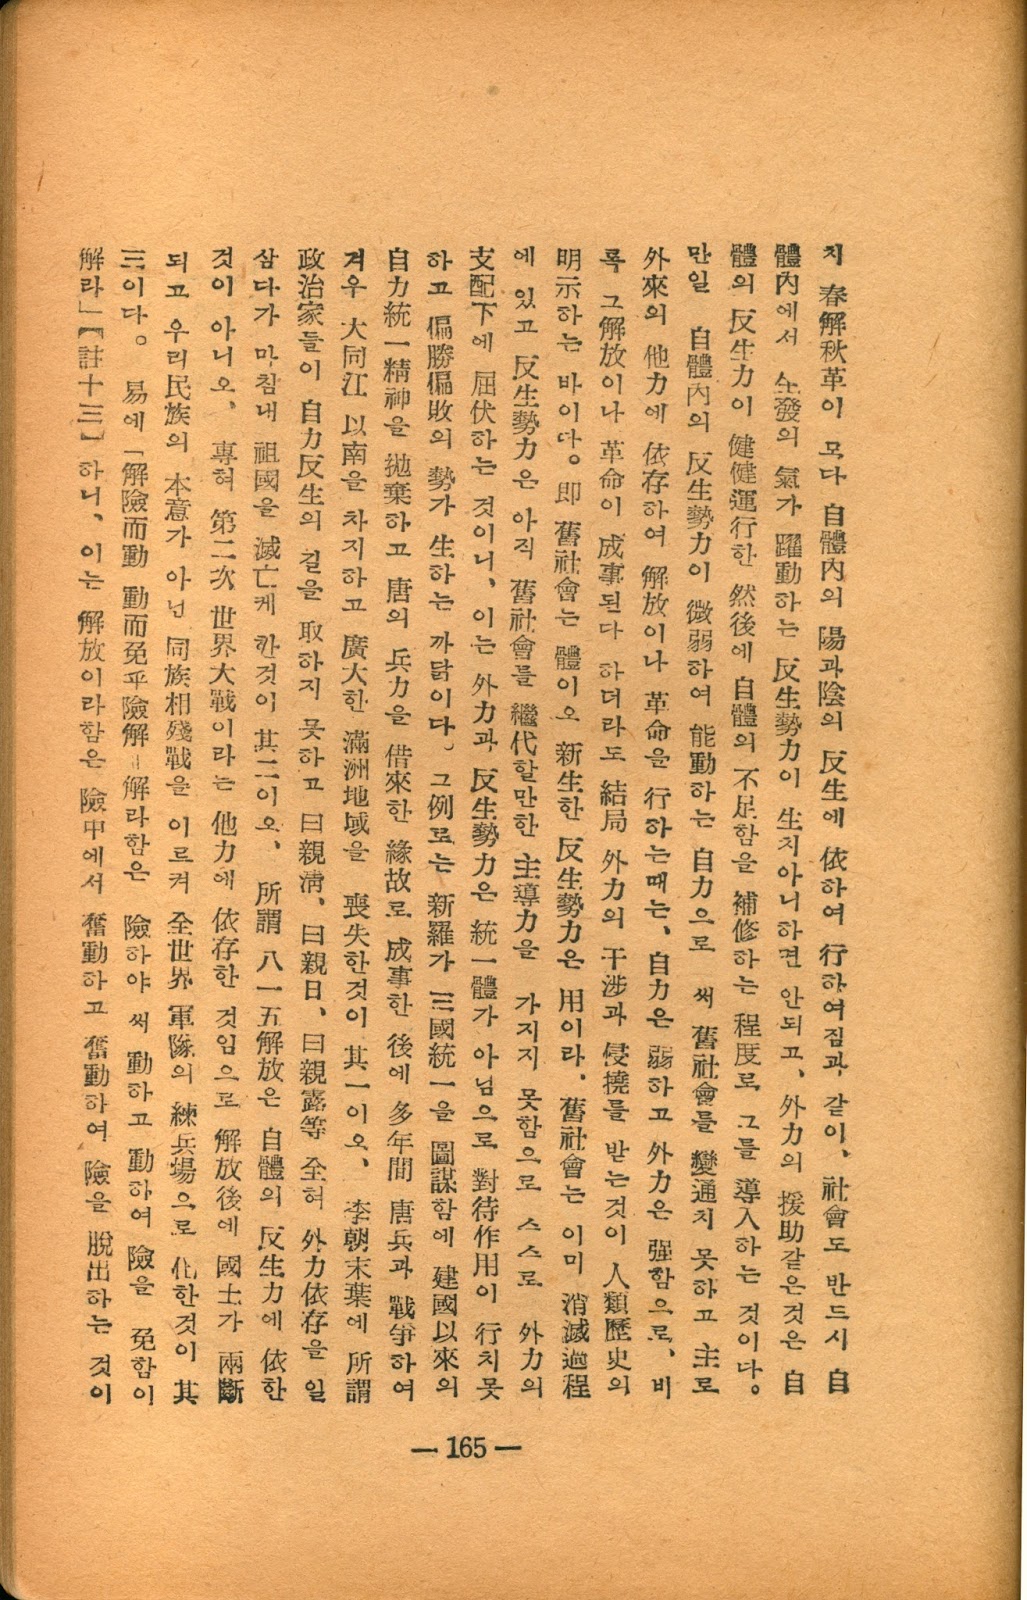 치 春解秋革이 모다 自體內의 陽과陰의 反生에 依하여 行하여짐과 같이、社會도 반드시 自
體內에서 生發의 氣가 躍動하는 反生勢力이 生치아니하면 안되고、外力의 援助같은것은 自
體의 反生力이 健健運行한 然後에 自體의 不足함을 補修하는 程度로 그를 導入하는 것이다。
만일 自體內의 反生勢力이 微弱하여 能動하는 自力으로 써 舊社會를 變通치 못하고 主로
外來의 他力에 依存하여 解放이나 革命을 行하는때는、自力은 弱하고 外力은 强함으로、비
록 그解放이나 革命이 成事된다 하더라도 結局 外力의 干涉과 侵撓를 받는것이 人類歷史의
明示하는 바이다。即 舊社會는 體이오 新生한 反生勢力은 用이라. 舊社會는 이미 消滅過程
에 있고 反生勢力은 아직 舊社會를 繼代할만한 主導力을 가지지 못함으로 스스로 外力의
支配下에 屈伏하는 것이니、이는 外力과 反生勢力은 統一體가 아님으로 對待作用이 行치못
하고 偏勝偏敗의 勢가 生하는 까닭이다。그例로는 新羅가 三國統一을 圖謀함에 建國以來의
自力統一精神을 拋棄하고 唐의 兵力을 借來한 緣故로 成事한 後에 多年間 唐兵과 戰爭하여
겨우 大同江 以南을 차지하고 廣大한 滿洲地域을 喪失한것이 其一이오、李朝末葉에 所謂
政治家들이 自力反生의 길을 取하지 못하고 曰親淸、曰親日、曰親露等 全혀 外力依存을 일
삼다가 마침내 祖國을 滅亡케 한것이 其二이오、所謂 八一五解放은 自體의 反生力에 依한
것이 아니오、專혀 第二次 世界大戰이라는 他力에 依存한 것임으로 解放後에 國土가 兩斷
되고 우리民族의 本意가 아닌 同族相殘戰을 이르켜 全世界 軍隊의 練兵場으로 化한것이 其
三이다。易에「解險而動 動而免乎險解」解라함은 險하야 써 動하고 動하여 險을 免함이
解라」【註十三】하니、이는 解放이라함은 險中에서 奮動하고 奮動하여 險을 脫出하는 것이
— 165 —